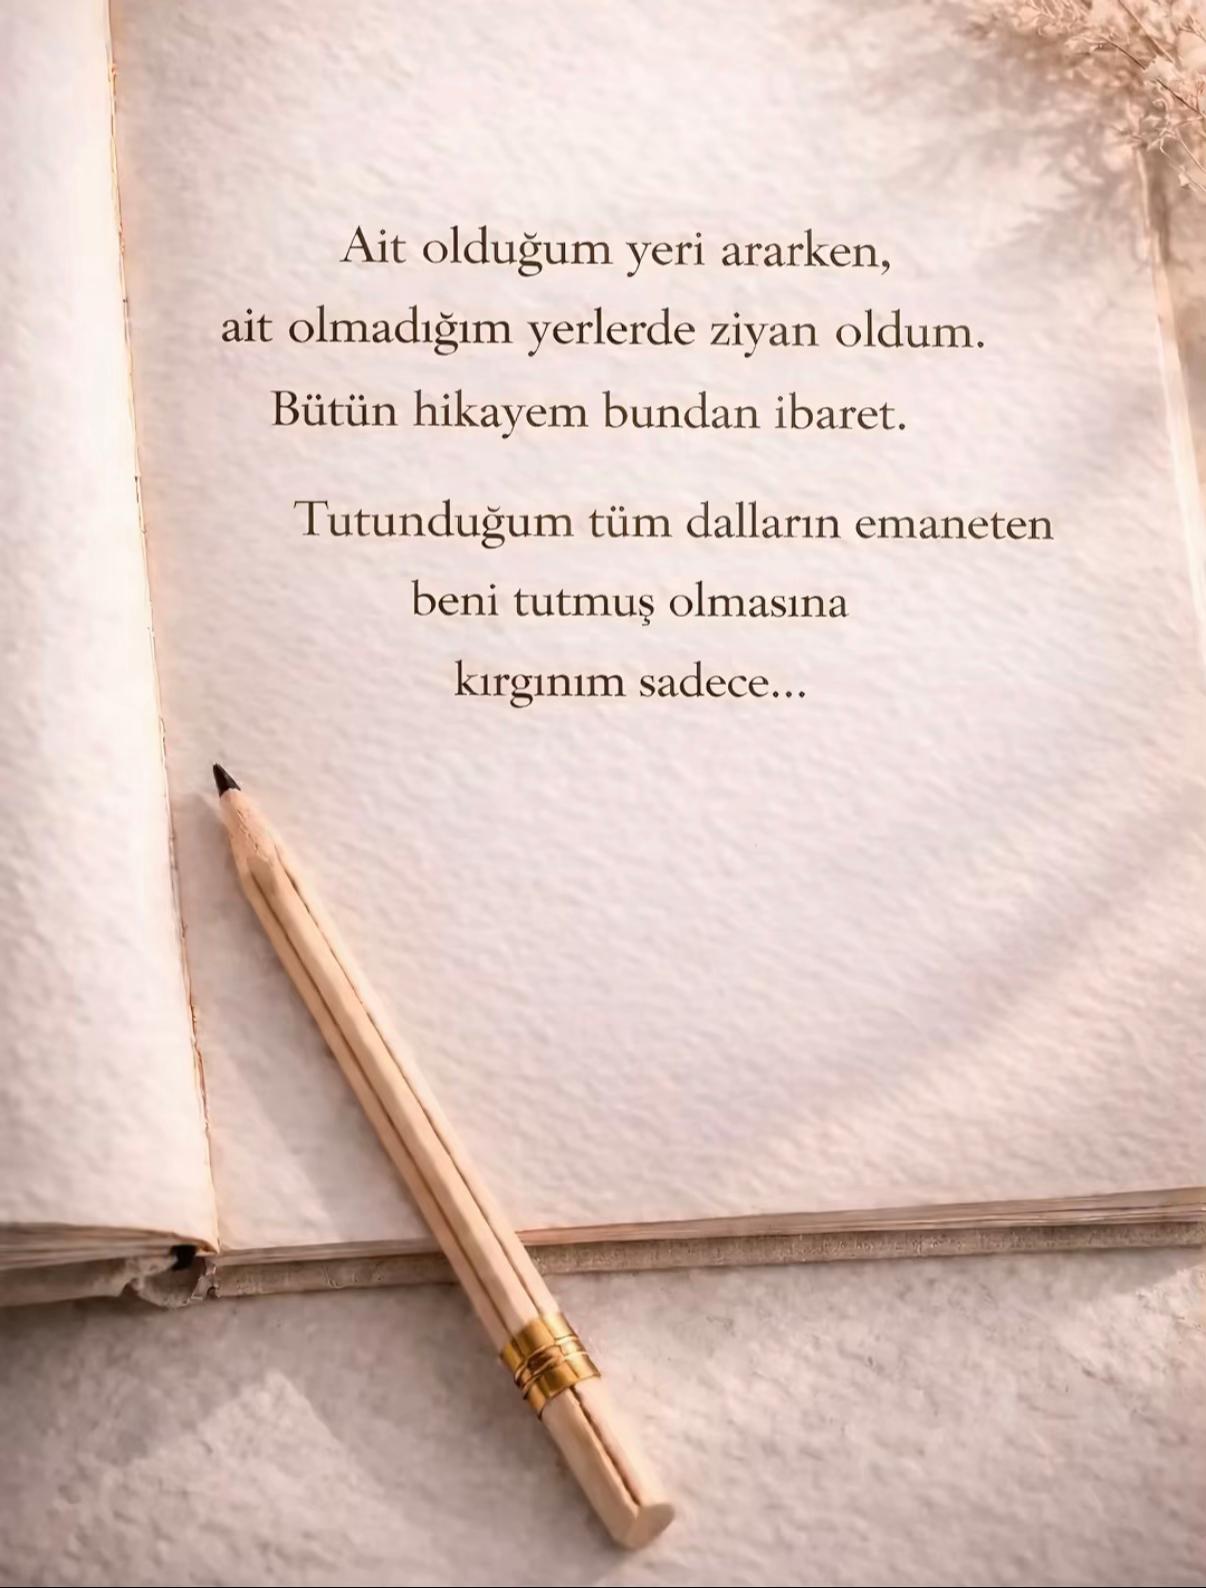 Ait olduğum yeri ararken,
ait olmadığım yerlerde ziyan oldum.
Bütün hikayem bundan ibaret.
Tutunduğum tüm dalların emaneten
beni tutmuş olmasına
kırgınım sadece...